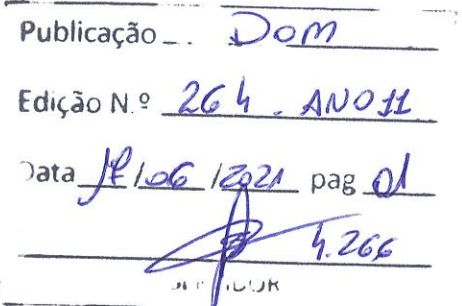 Publicação DOM
Edição N.º 264 - ANO 11
Data /06/2021 pag 01
4.266